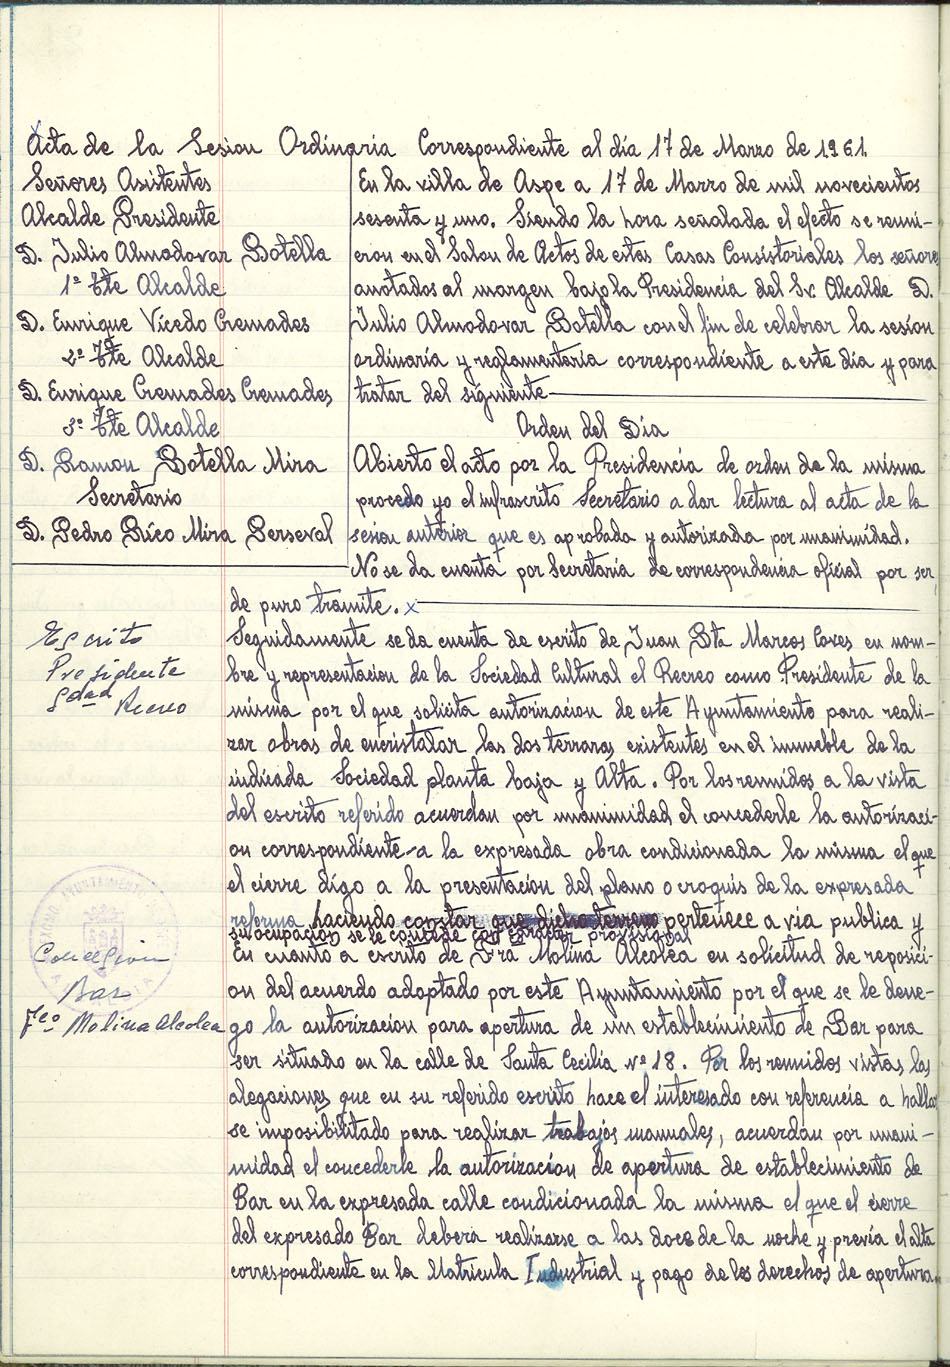 Acta de la Sesion Ordinaria Correspondiente al día 17 de Marzo de 1.961.
Señores Asistentes
Alcalde Presidente
D. Julio Almodovar Botella
1º Tte Alcalde
D. Enrique Vicedo Cremades
2º Tte Alcalde
D. Enrique Cremades Cremades
3º Tte Alcalde
D. Ramon Botella Mira
Secretario
D. Pedro Rico Mira Perseval
En la villa de Aspe a 17 de Marzo de mil novecientos
sesenta y uno. Siendo la hora señalada el efecto se reuni-
eron en el Salon de Actos de estas Casas Consistoriales los señores
anotados al margen bajo la Presidencia del Sr. Alcalde D.
Julio Almodovar Botella con el fin de celebrar la sesion
ordinaria y reglamentaria correspondiente a este día y para
tratar del siguiente
Orden del Día
Abierto el acto por la Presidencia de orden de la misma
procedo yo el infrascrito Secretario a dar lectura al acta de la
sesion anterior que es aprobada y autorizada por unanimidad.
No se da cuenta por Secretaría de correspondencia oficial por ser
de puro tramite. x
Escrito
Presidente
Sdad Recreo
Seguidamente se da cuenta de escrito de Juan Bta Marcos Coves en nom-
bre y representacion de la Sociedad Cultural el Recreo como Presidente de la
misma por el que solicita autorizacion de este Ayuntamiento para reali-
zar obras de encristalar las dos terrazas existentes en el inmueble de la
indicada Sociedad planta baja y Alta. Por los reunidos a la vista
del escrito referido acuerdan por unanimidad el concederle la autorizaci-
on correspondiente a la expresada obra condicionada la misma el que
el cierre digo a la presentacion del plano o croquis de la expresada
reforma haciendo constar que dicho terreno pertenece a via publica y
su ocupacion se le concede con caracter provisional
Concesion
Bar
Fco Molina Alcolea
En cuanto a escrito de Fra Molina Alcolea en solicitud de reposici-
on del acuerdo adoptado por este Ayuntamiento por el que se le dene-
go la autorizacion para apertura de un establecimiento de Bar para
ser situado en la calle de Santa Cecilia nº 18. Por los reunidos vistas las
alegaciones que en su referido escrito hace el interesado con referencia a hallar
se imposibilitado para realizar trabajos manuales, acuerdan por unani-
midad el concederle la autorizacion de apertura de establecimiento de
Bar en la expresada calle condicionada la misma el que el cierre
del expresado Bar debera realizarse a las doce de la noche y previa el alta
correspondiente en la Matricula Industrial y pago de los derechos de apertura.